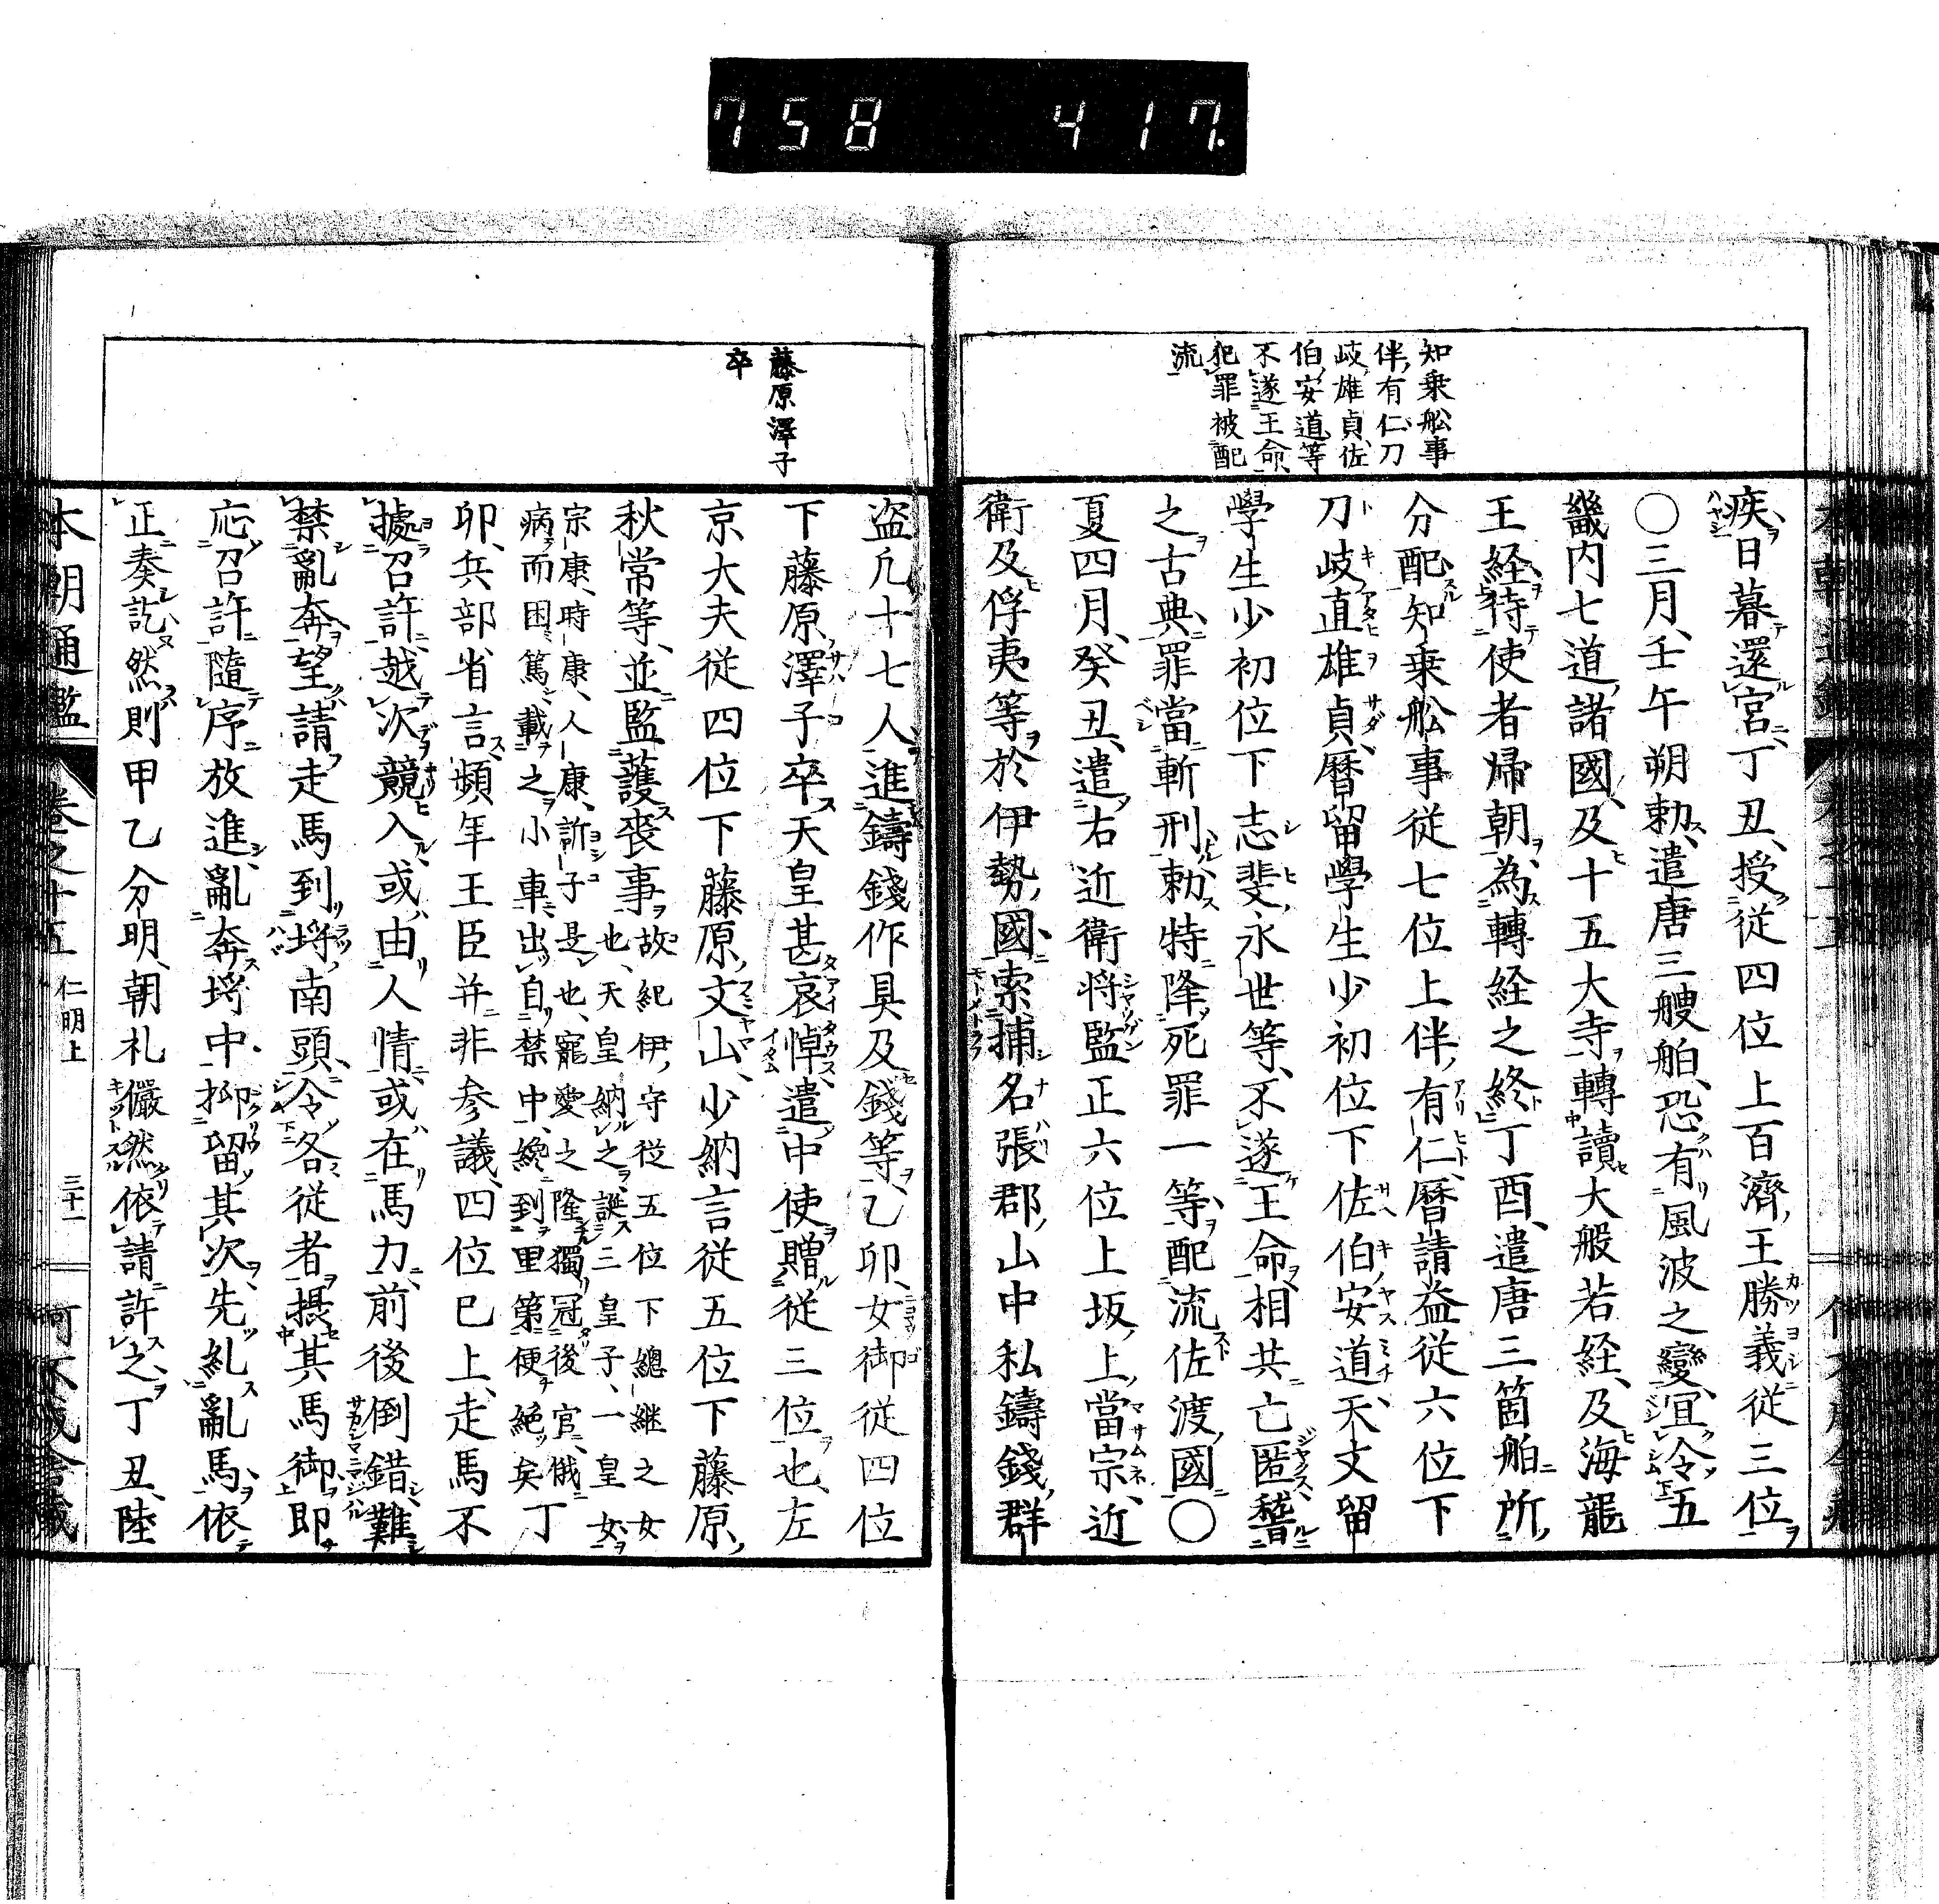 758 417.
知乗舩事
伴有仁刀
岐雄貞佐
伯安道等
不遂王命
犯罪被配
流
疾日暮還宮丁丑授従四位上百濟王勝義従三位
〇三月壬午朔勅遣唐三艘舶恐有風波之變宜令五
畿内七道諸國及十五大寺轉讀大般若経及海龍
王経待使者帰朝為轉経之終丁酉遣唐三箇舶所
分配知乗舩事従七位上伴有仁暦請益従六位下
刀岐直雄貞暦留學生少初位下佐伯安道天文留
學生少初位下志斐永世等不遂王命相共亡匿稽
之古典罪當斬刑勅特降死罪一等配流佐渡國〇
夏四月癸丑遣右近衛将監正六位上坂上當宗近
衛及俘夷等於伊勢國索捕名張郡山中私鑄錢群
藤原澤子
卒
盗凢十七人進鑄錢作具及錢等乙卯女御従四位
下藤原澤子卒天皇甚哀悼遣中使贈従三位也左
京大夫従四位下藤原文山少納言従五位下藤原
秋常等並監護喪事也故紀伊守従五位下總継之女
也天皇納之誕三皇子一皇女
宗康時康人康訢子是也寵愛之隆獨冠後官俄
病而困篤載之小車出自禁中纔到里第便絶矣丁
卯兵部省言頻年王臣并非参議四位已上走馬不
據召許越次競入或由人情或在馬力前後倒錯難
禁亂奔望請走馬到埒南頭令各従者摂其馬御即
応召許隨序放進亂奔埒中抑留其次先糺亂馬依
正奏訖然則甲乙分明朝札儼然依請許之丁丑陸
本朝通鑑 卷之十五 仁明上 三十一